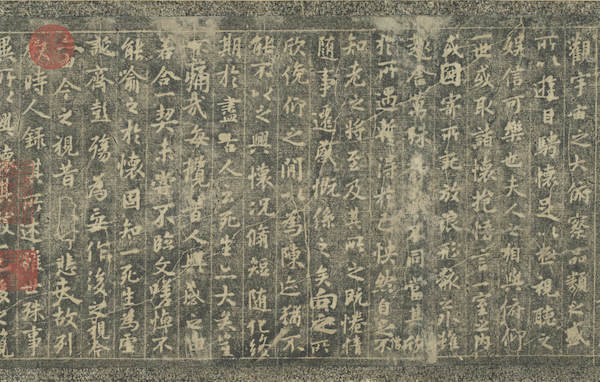 觀宇宙之大俯察品類之盛
所以遊目騁懷足以極視聽之
娛信可樂也夫人之相與俯仰
一世或取諸懷抱悟言一室之內
或因寄所託放浪形骸之外雖
趣舍萬殊不同當其欣
於所遇暫得於己快然自足不
知老之將至及其所之既惓情
隨事遷感慨係之矣向之所
欣俛仰之間以為陳迹猶不
能不以之興懷況脩短隨化終
期於盡古人云死生亦大矣豈
不痛哉每攬昔人興感之由
若合一契未嘗不臨文嗟悼不
能喻之於懷固知一死生為虛
誕齊彭殤為妄作後之視今
今之視昔悲夫故列
敘時人錄其所述雖世殊事
異所以興懷其致一也後之攬